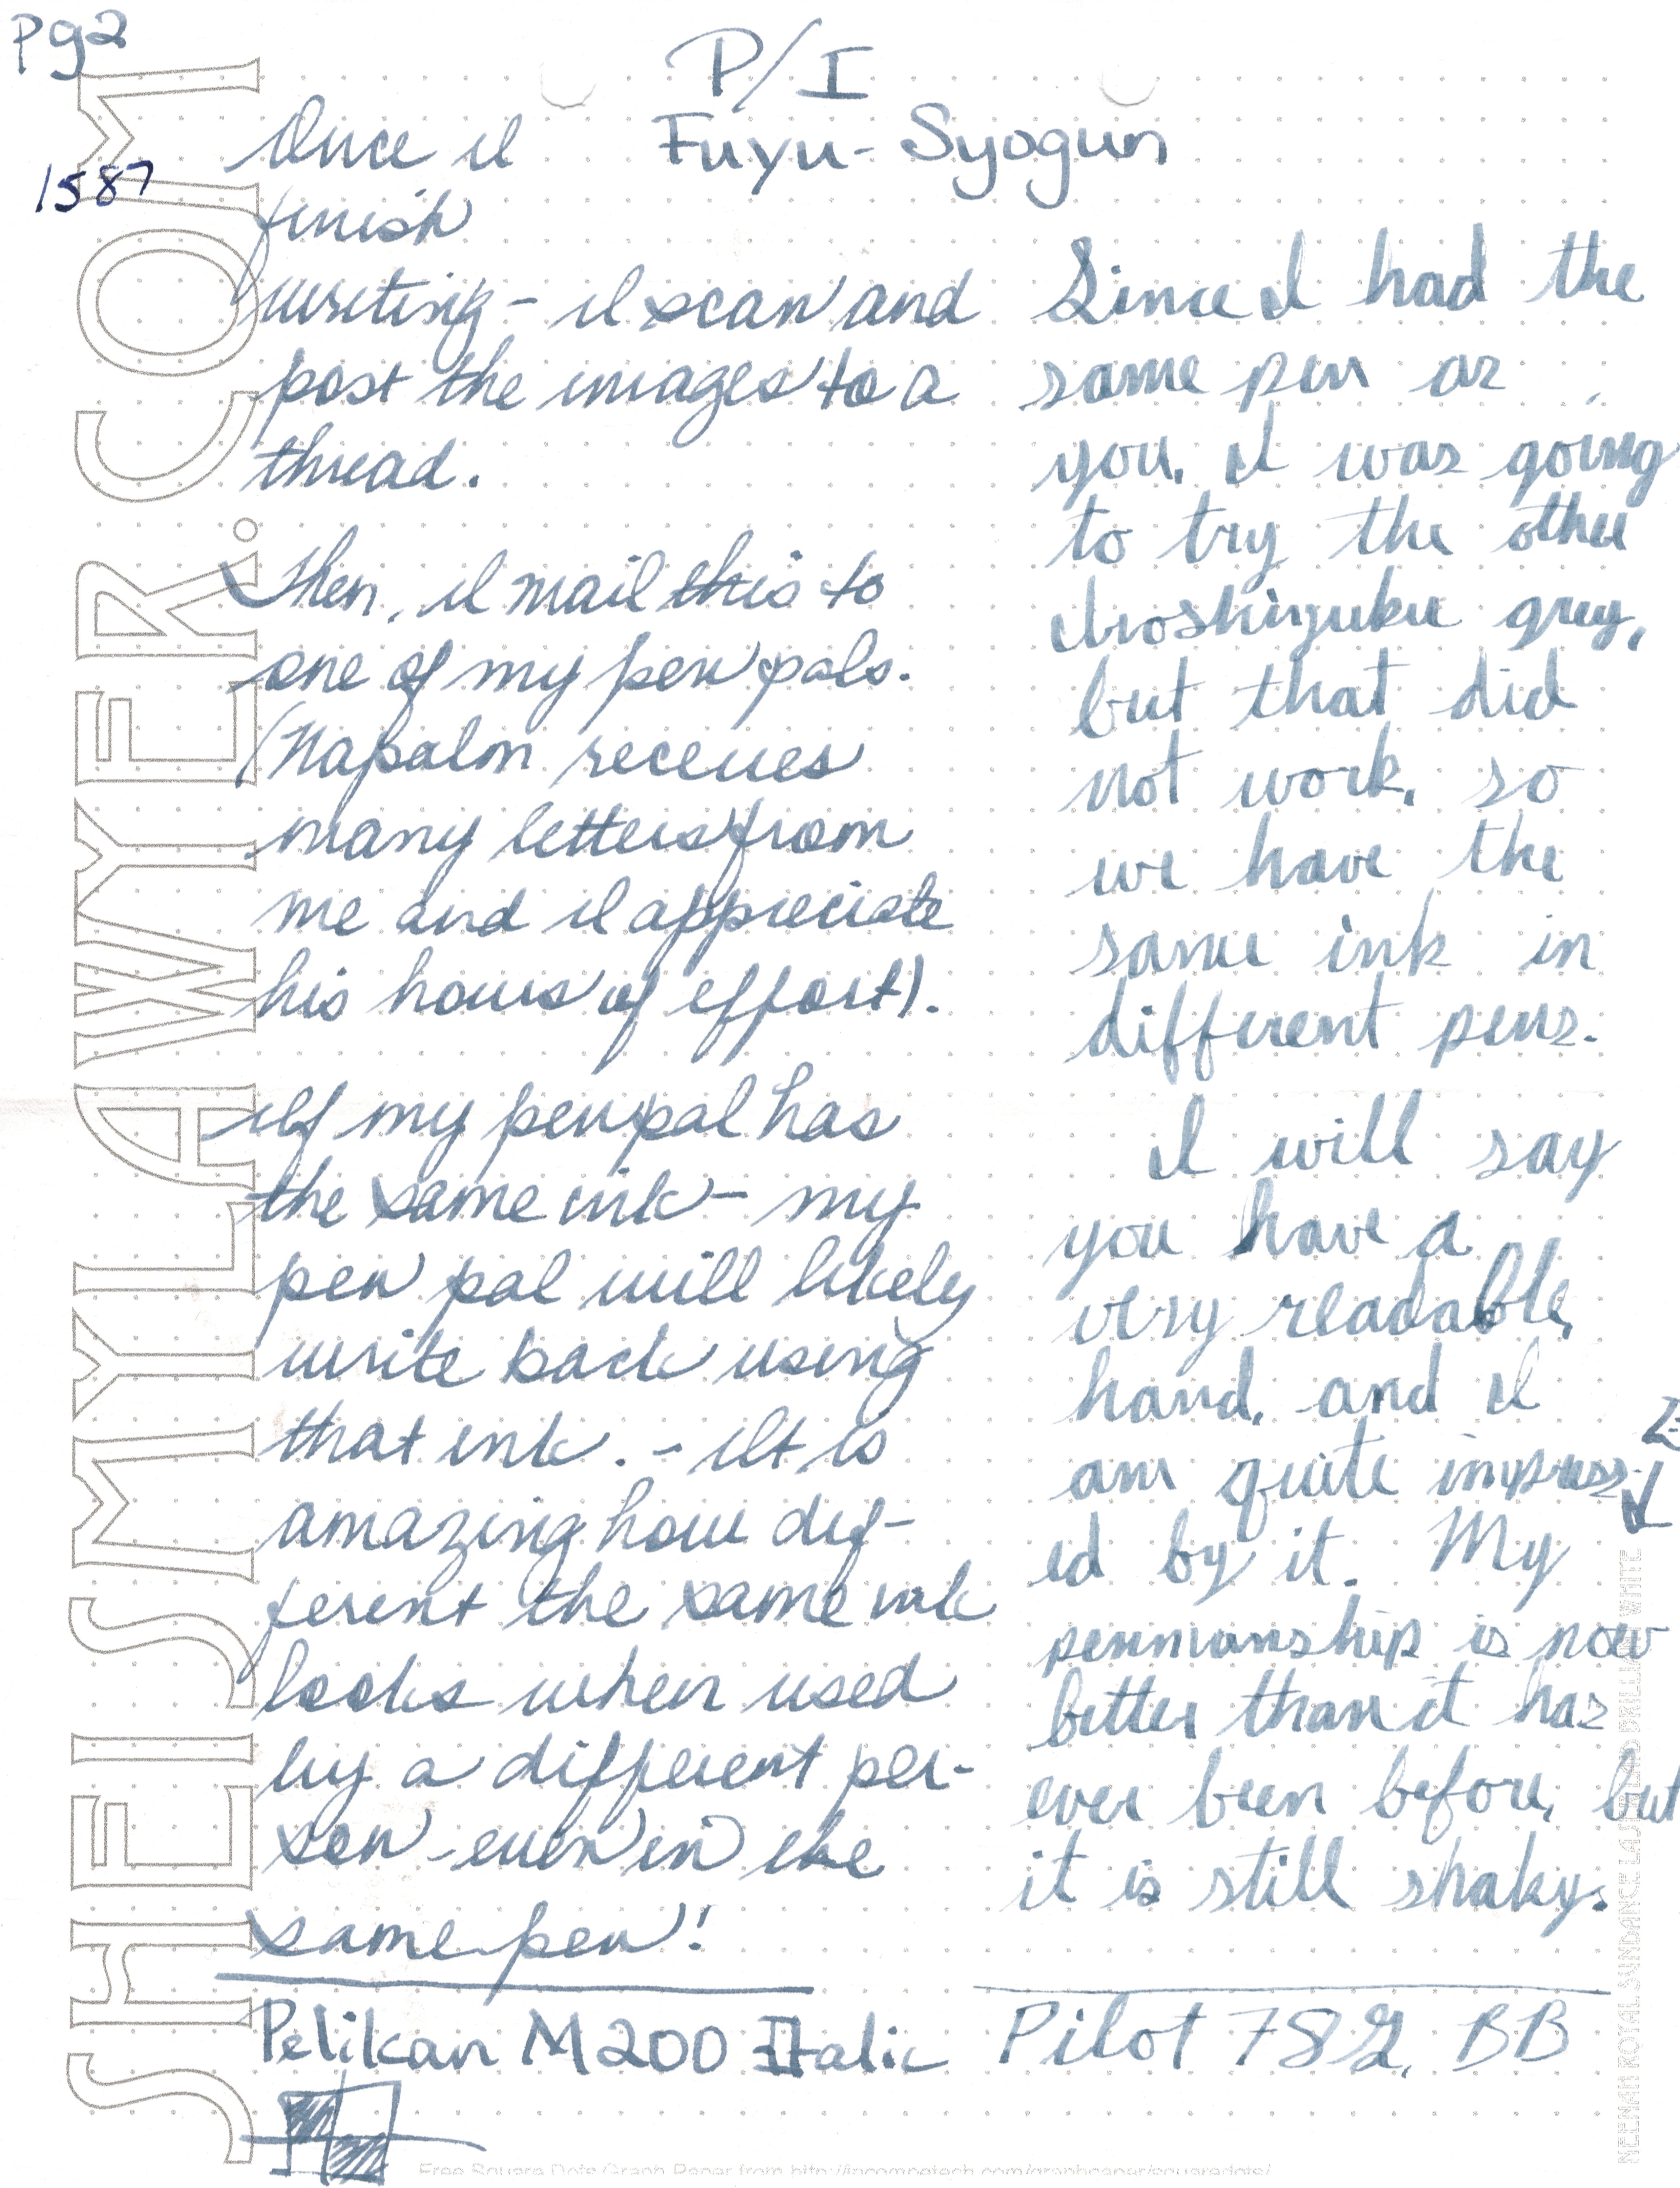 pg2
P/I
Fuyu-Syogun
1587
Once I
finish
writing - I scan and
post the images to a
thread.
Then, I mail this to
one of my pen pals.
(Napalm receives
many letters from
me and I appreciate
his hours of effort).
If my penpal has
the same ink - my
pen pal will likely
write back using
that ink. - It is
amazing how dif-
ferent the same ink
looks when used
by a different per-
son - even in the
same pen!
Pelikan M200 Italic
Since I had the
same pen as
you, I was going
to try the other
Iroshizuku grey,
but that did
not work, so
we have the
same ink in
different pens.
I will say
you have a
very readable
hand, and I
am quite impress-
ed by it. My
penmanship is now
better than it has
ever been before, but
it is still shaky.
Pilot 78G, BB
SHEISMYLAWYER.COM
NEENAH ROYAL SUNDANCE LASER LAID BRILLIANT WHITE
Free Square Dots Graph Paper from http://incompetech.com/graphpaper/squaredots/